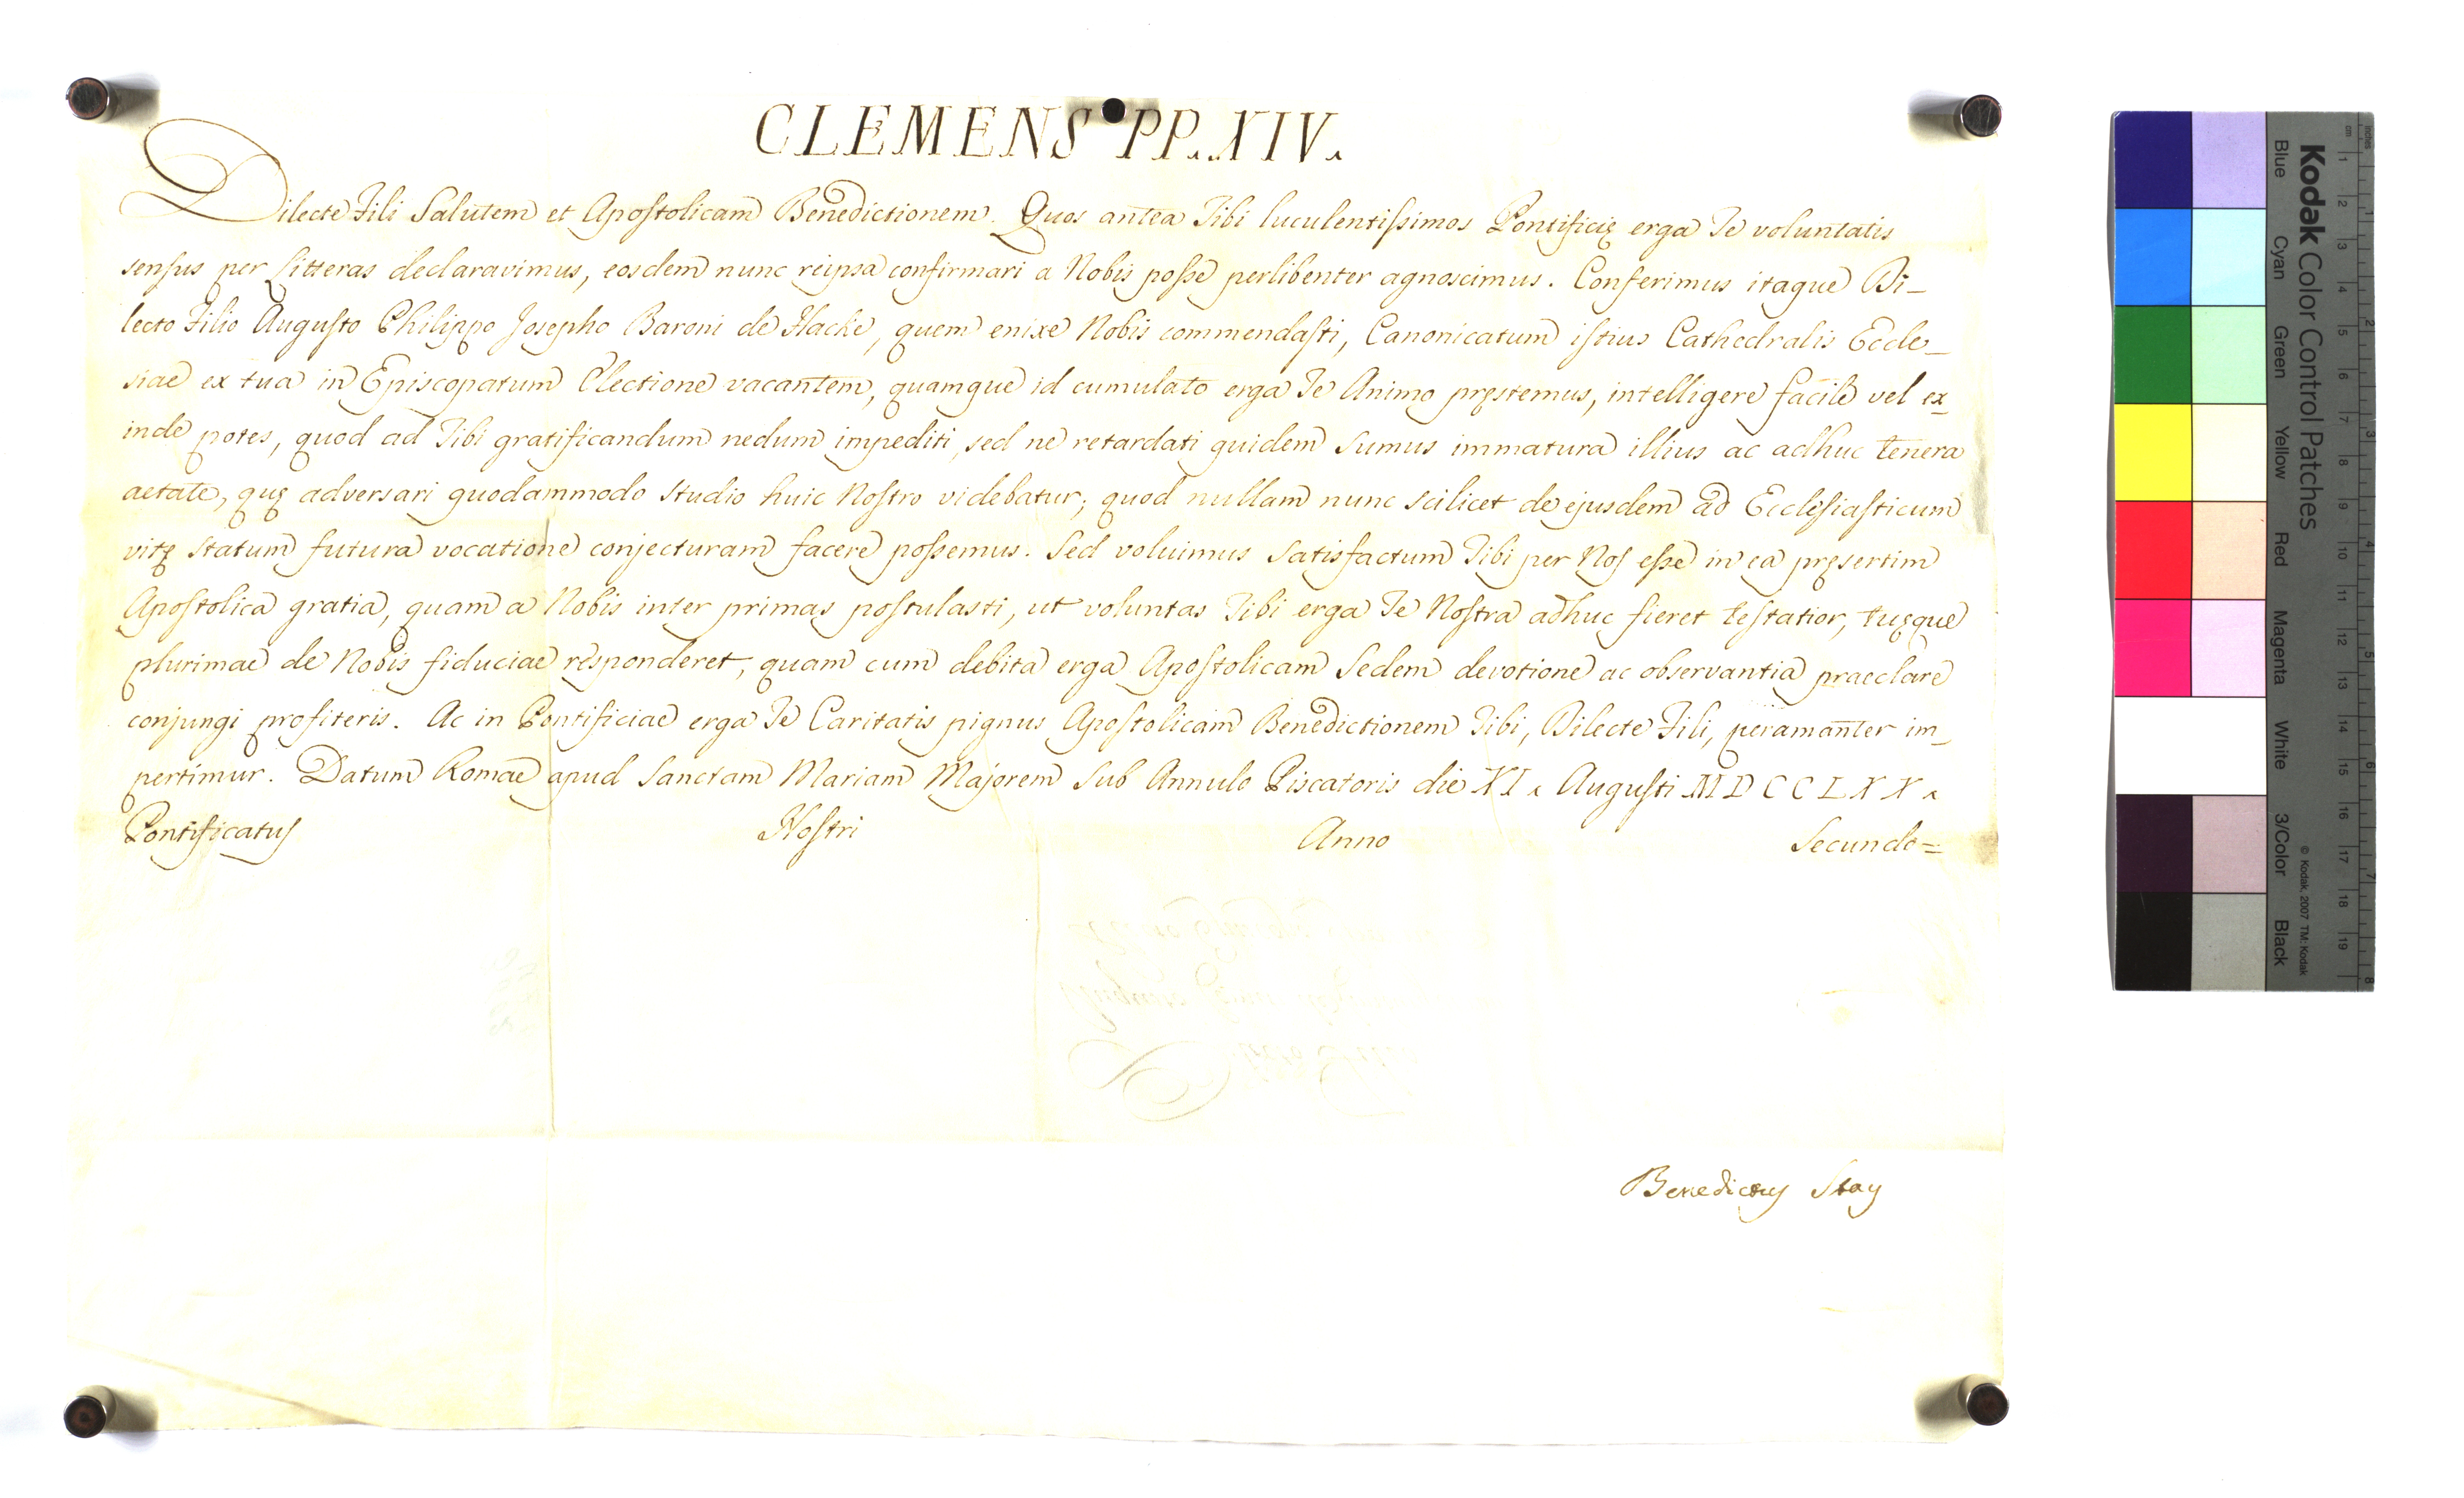 CLEMENS PP. XIV.
Dilecte Fili Salutem et Apostolicam Benedictionem. Quos antea Tibi luculentissimos Pontificię erga Te voluntatis
sensus per Litteras declaravimus, eosdem nunc reipsa confirmari a Nobis posse perlibenter agnoscimus. Conferimus itaque Di-
lecto Filio Augusto Philippo Josepho Baroni de Hacke, quem enixe Nobis commendasti, Canonicatum istius Cathedralis Eccle-
siae ex tua in Episcopatum Electione vacantem, quamque id cumulato erga Te Animo pręstemus, intelligere facile vel ex-
inde potes, quod ad Tibi gratificandum nedum impediti, sed ne retardati quidem sumus immatura illius ac adhuc tenera
aetate, quę adversari quodammodo studio huic Nostro videbatur; quod nullam nunc scilicet de ejusdem ad Ecclesiasticum
vitę statum futura vocatione conjecturam facere possemus. Sed voluimus satisfactum Tibi per Nos esse in ea pręsertim
Apostolica gratia, quam a Nobis inter primas postulasti, ut voluntas Tibi erga Te Nostra adhuc fieret testatior, tuęque
plurimae de Nobis fiduciae responderet, quam cum debita erga Apostolicam Sedem devotione ac observantia praeclare
conjungi profiteris. Ac in Pontificiae erga Te Caritatis pignus Apostolicam Benedictionem Tibi, Dilecte Fili, peramanter im-
pertimur. Datum Romae apud Sanctam Mariam Majorem sub Annulo Piscatoris die XI. Augusti MDCCLXX.
Pontificatus Nostri Anno Secundo=
Benedictus Stay
Kodak Color Control Patches
Blue Cyan Green Yellow Red Magenta White 3/Color Black
© Kodak, 2007 TM: Kodak
cm 1 2 3 4 5 6 7 8 9 10 11 12 13 14 15 16 17 18 19
inches 1 2 3 4 5 6 7 8